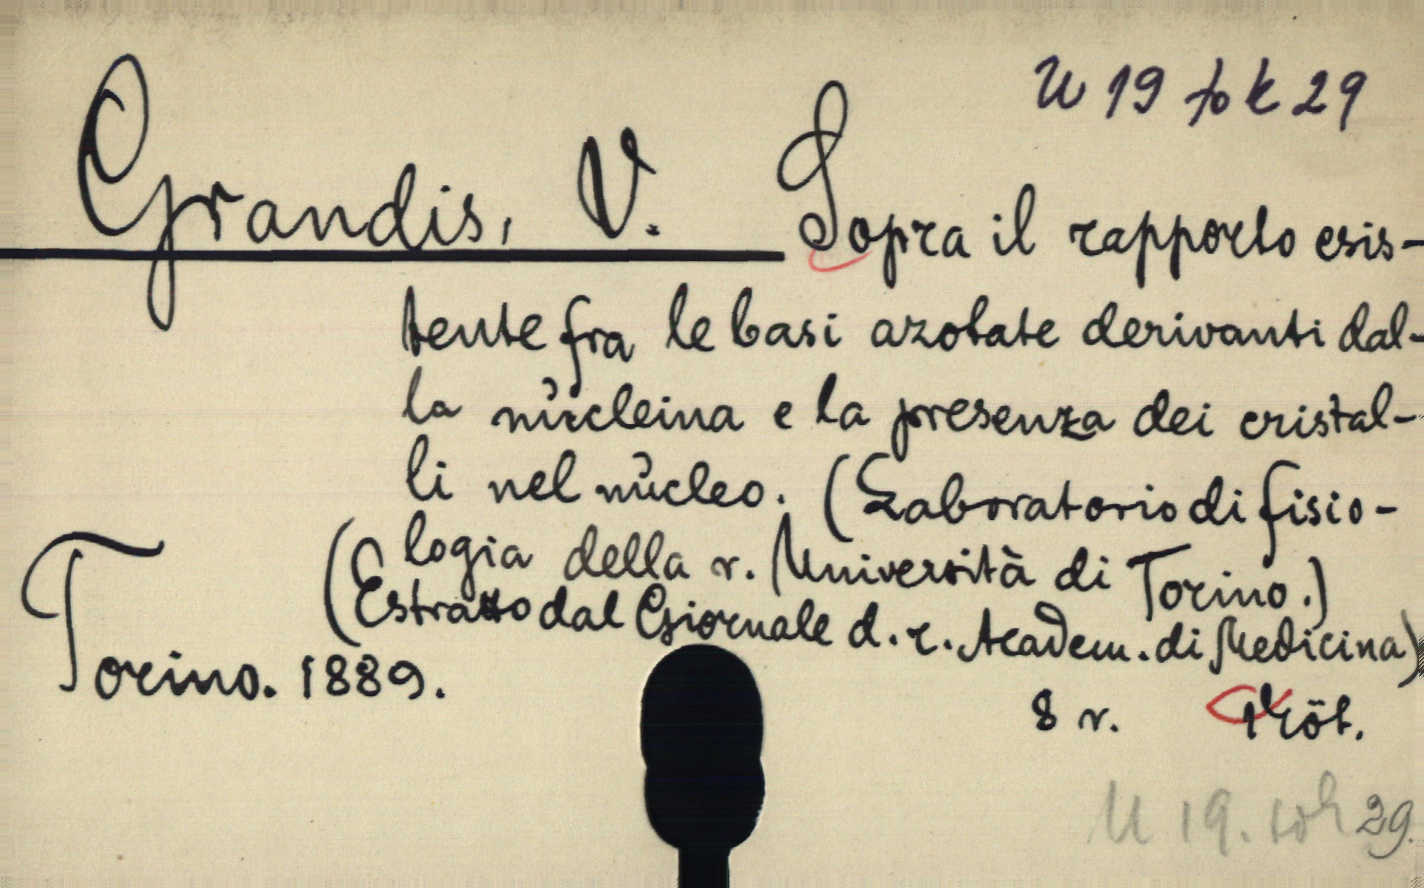 U 19 fok 29
Grandis, V. Sopra il rapporto esis-
tente fra le basi azotate derivanti dal-
la nucleina e la presenza dei cristal-
li nel nucleo. (Laboratorio di fisio-
logia della r. Università di Torino.)
(Estratto dal Giornale d. r. Academ. di Medicina)
Torino. 1889.
8 r. Köt.
U 19. 29.